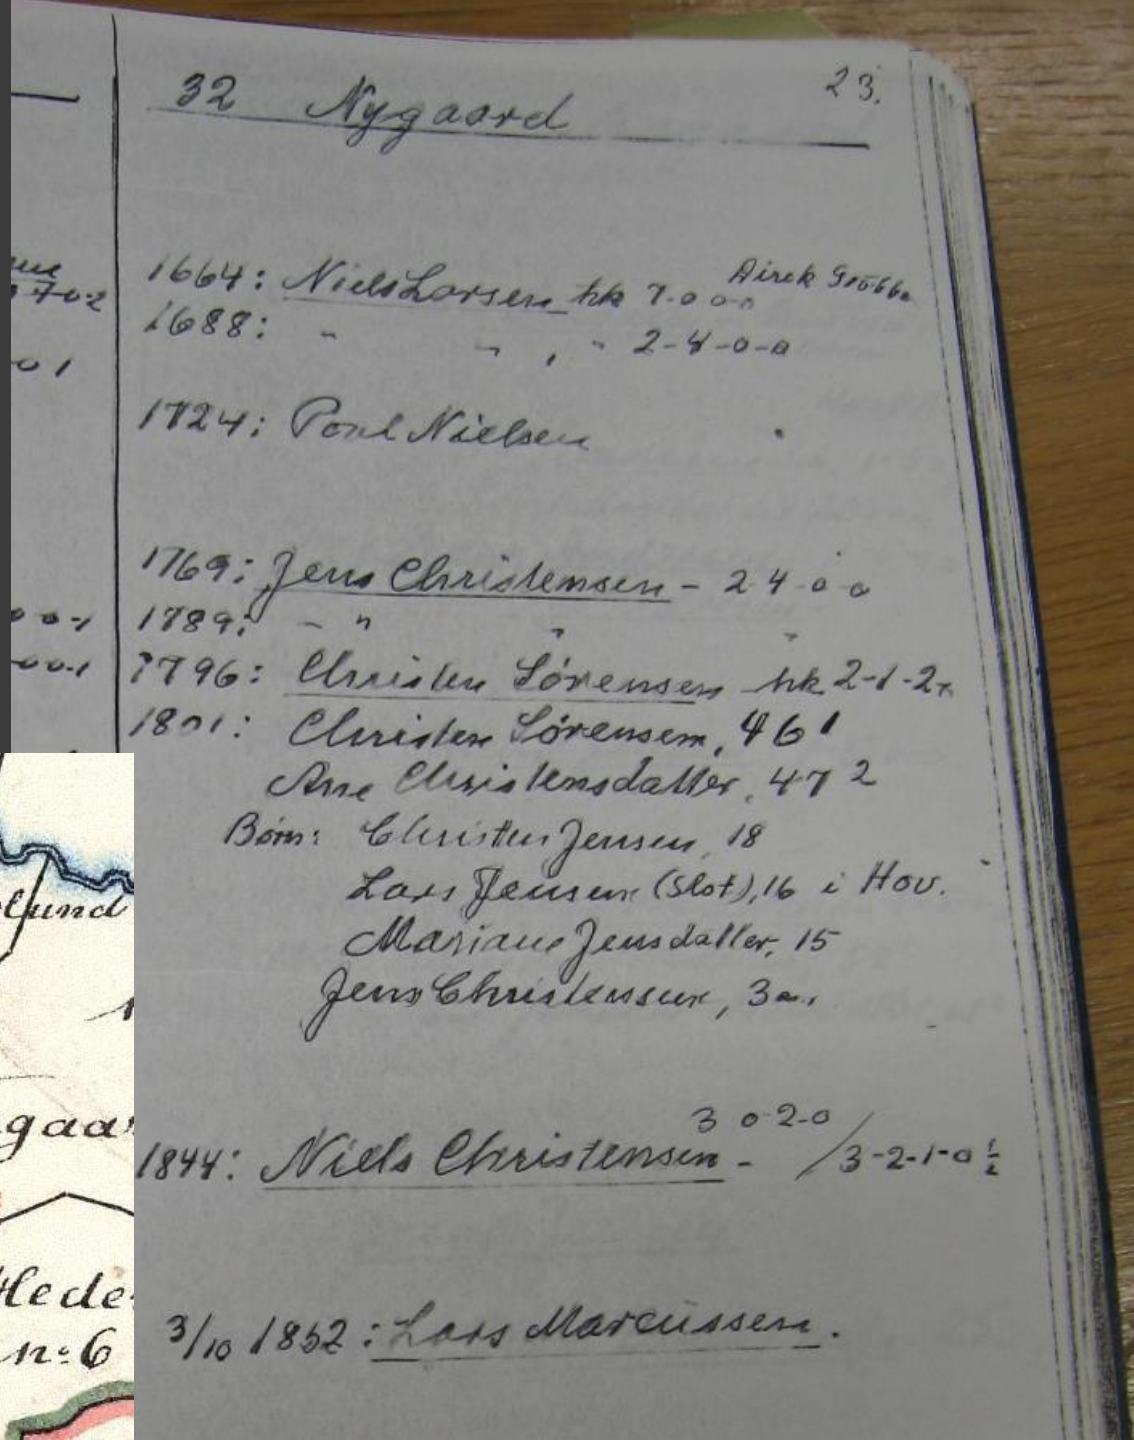 32 Nygaard
23.
1664: Niels Larsen hk 7-0-0-0
1688: " " , " 2-4-0-0
1724: Poul Nielsen
1769: Jens Christensen - 2-4-0-0
1789: - " " "
1796: Christen Sörensen hk 2-1-2
1801: Christen Sörensen, 46 1
Ane Christensdatter, 47 2
Börn: Christen Jensen, 18
Lars Jensen (Slot), 16 i Hov.
Mariane Jensdatter, 15
Jens Christensen, 3
3 0-2-0
1844: Niels Christensen - /3-2-1-0 ½
3/10 1852: Lars Marcussen.
01
00-1
00-1
lund
gaar
Hede
nº 6